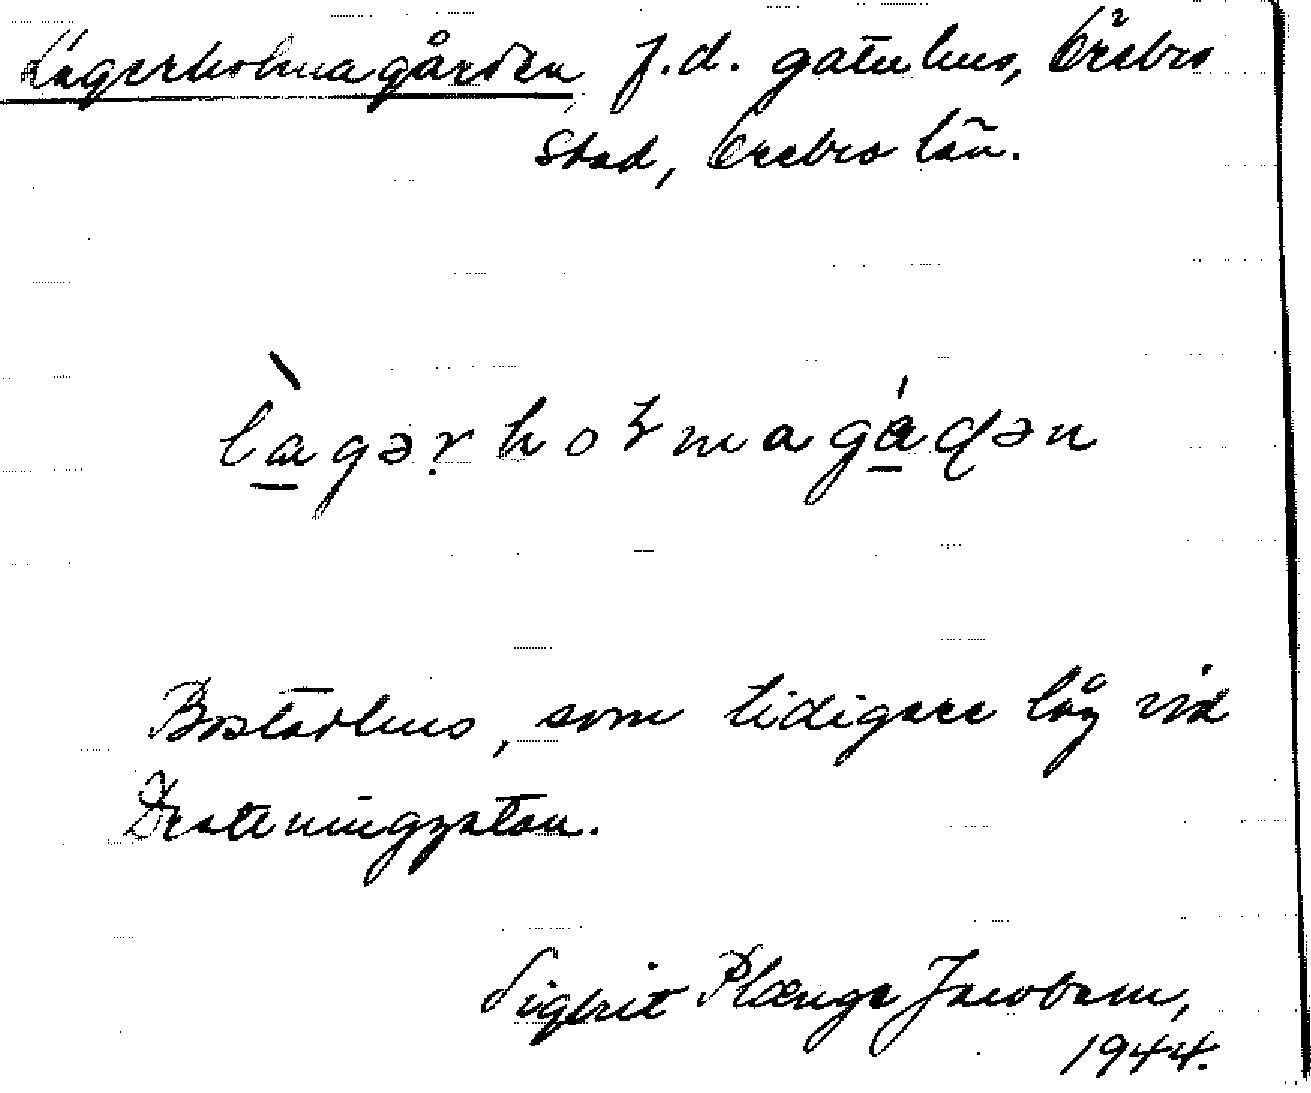 Lagerholmagården, f.d. gatuhus, Örebro
Stad, Örebro län.
làgərhoɫmagáɖən
Bostadhus, som tidigare låg vid
Drottninggatan.
Sigbrit Plænge Jacobson,
1944.